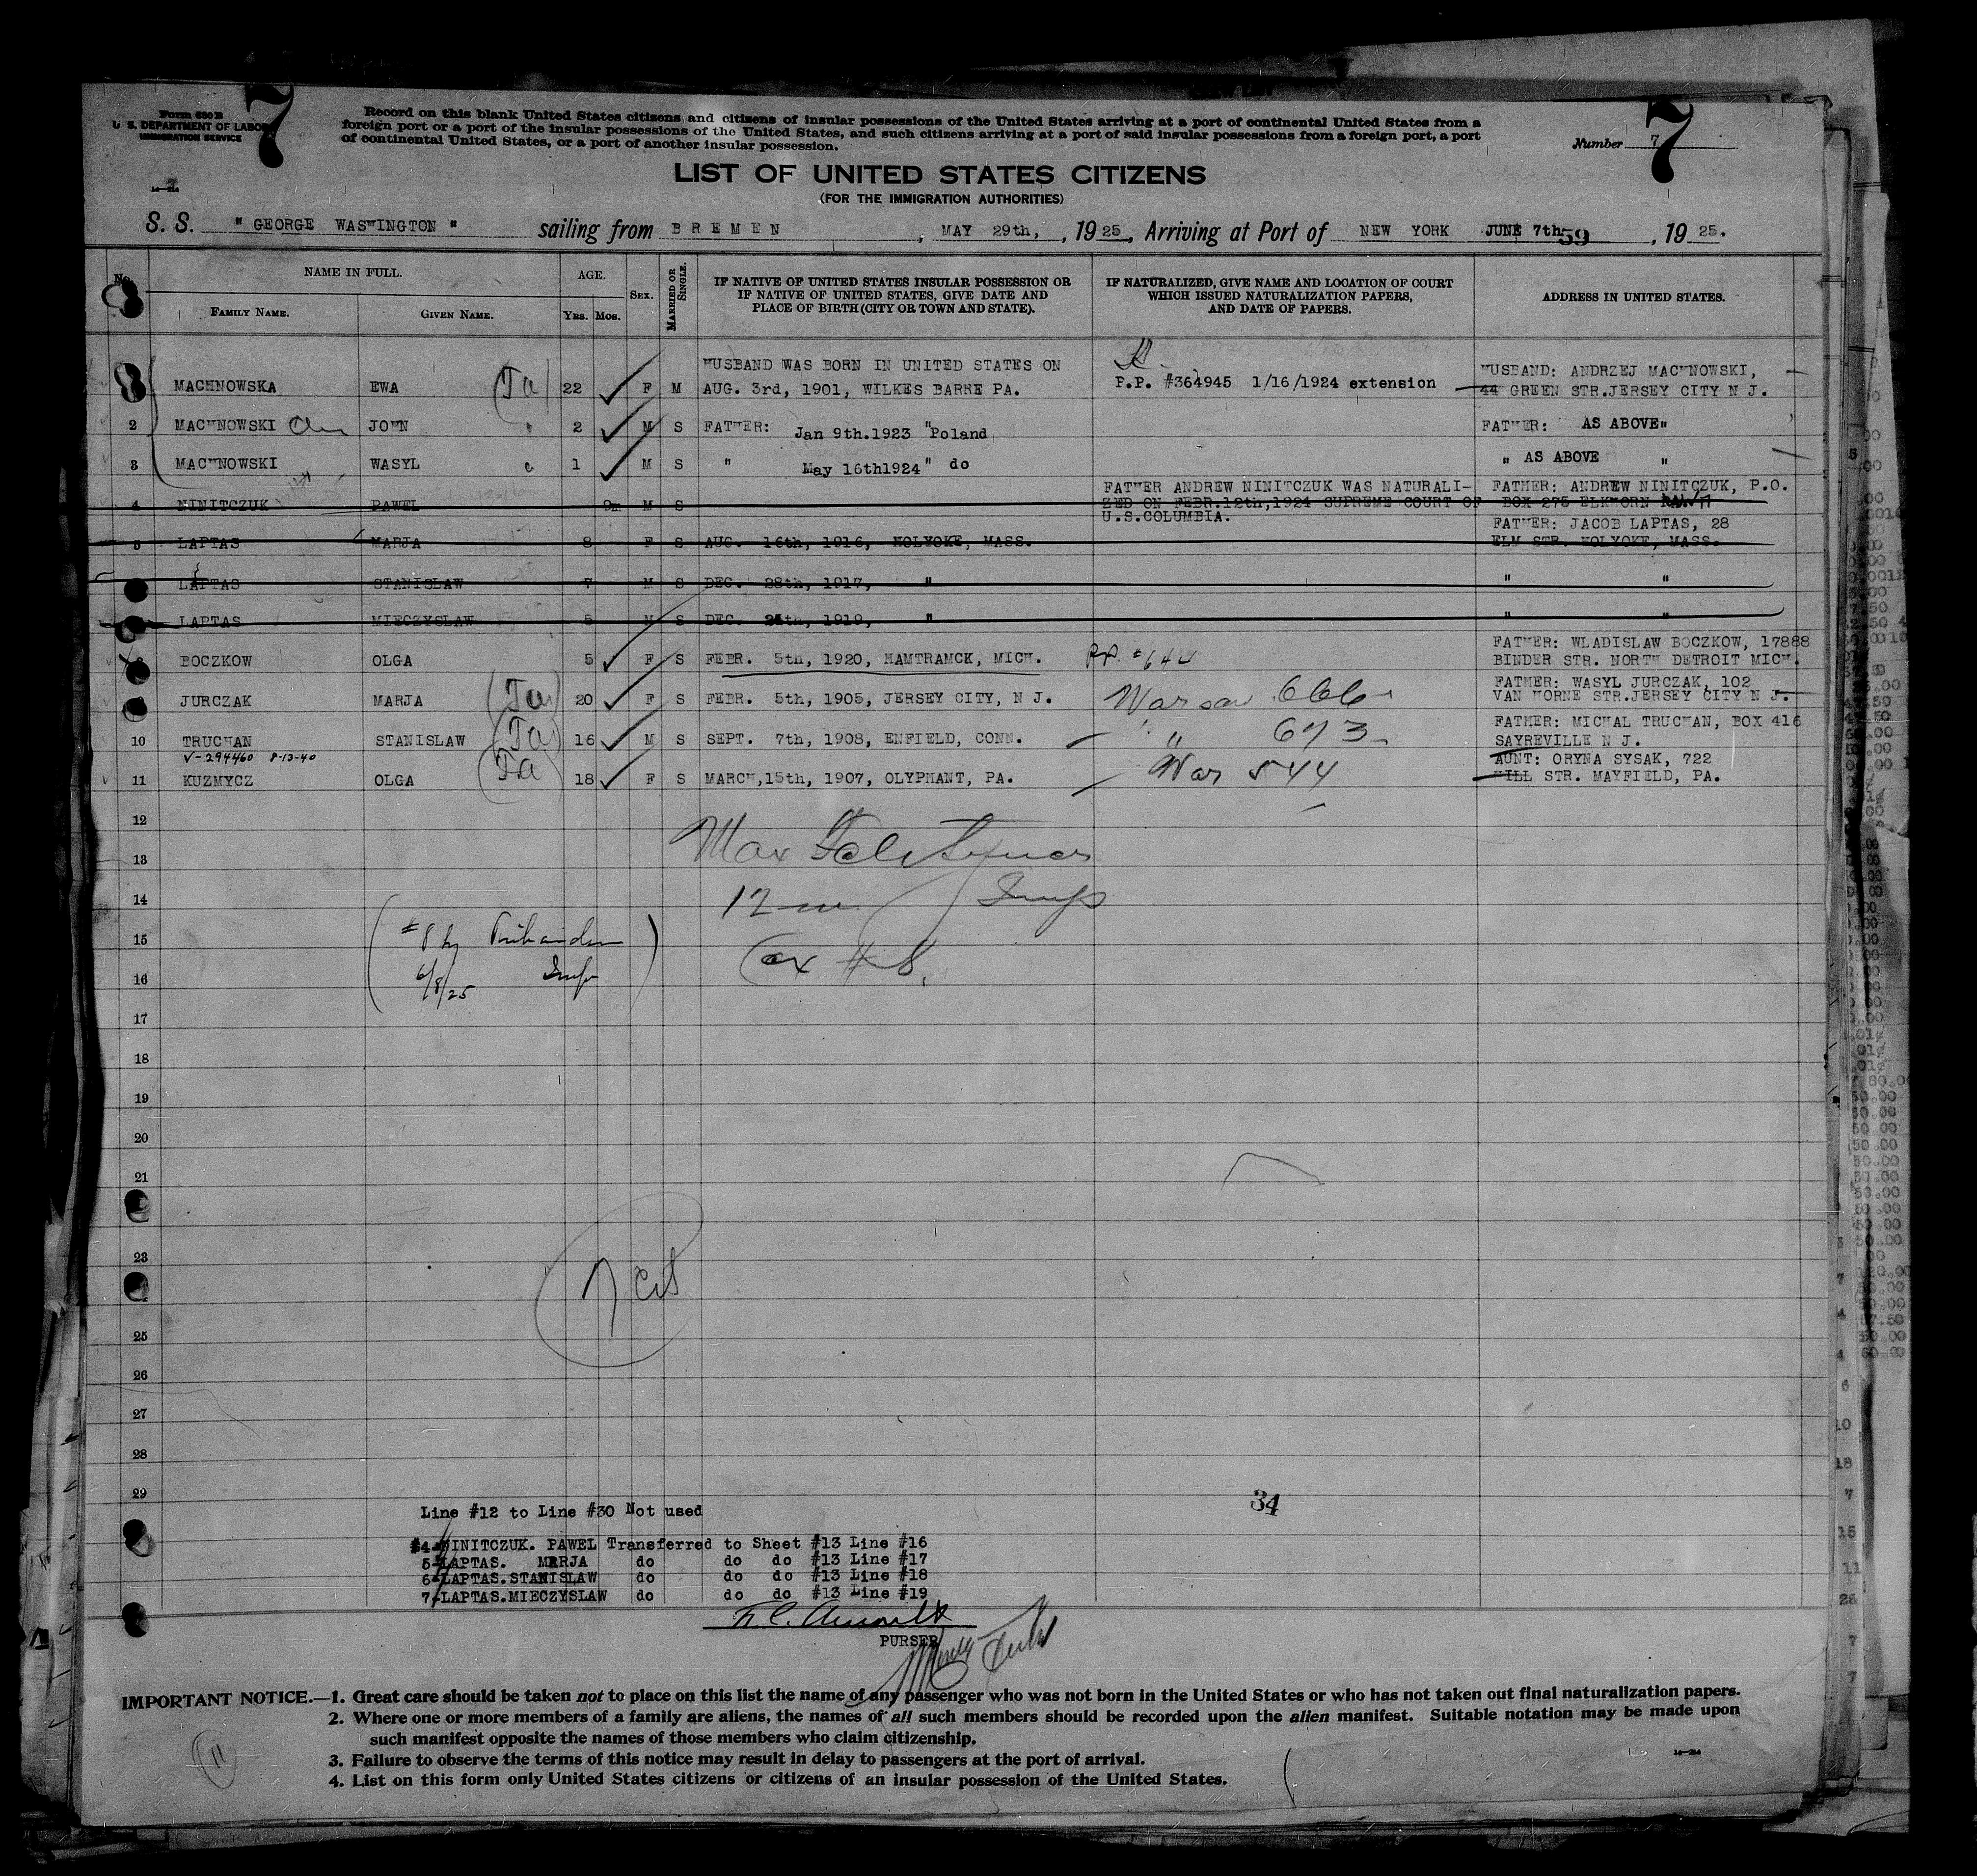 Form 630 B
U. S. DEPARTMENT OF LABOR
IMMIGRATION SERVICE
7
Record on this blank United States citizens and citizens of insular possessions of the United States arriving at a port of continental United States from a
foreign port or a port of the insular possessions of the United States, and such citizens arriving at a port of said insular possessions from a foreign port, a port
of continental United States, or a port of another insular possession.
Number 7
7
LIST OF UNITED STATES CITIZENS
(FOR THE IMMIGRATION AUTHORITIES)
S. S. " GEORGE WASHINGTON " sailing from BREMEN , MAY 29th, , 1925, Arriving at Port of NEW YORK JUNE 7th 59 , 1925.
No. NAME IN FULL. AGE. SEX. MARRIED OR SINGLE. IF NATIVE OF UNITED STATES INSULAR POSSESSION OR IF NATIVE OF UNITED STATES, GIVE DATE AND PLACE OF BIRTH (CITY OR TOWN AND STATE). IF NATURALIZED, GIVE NAME AND LOCATION OF COURT WHICH ISSUED NATURALIZATION PAPERS, AND DATE OF PAPERS. ADDRESS IN UNITED STATES.
FAMILY NAME. GIVEN NAME. YRS. MOS.
HUSBAND WAS BORN IN UNITED STATES ON HUSBAND: ANDRZEJ MACHNOWSKI,
MACHNOWSKA EWA (Ja) 22 F M AUG. 3rd, 1901, WILKES BARRE PA. P.P. #364945 1/16/1924 extension 44 GREEN STR.JERSEY CITY N J.
2 MACHNOWSKI JOHN 2 M S FATHER: Jan 9th.1923 "Poland FATHER: AS ABOVE"
3 MACHNOWSKI WASYL 1 M S " May 16th1924" do " AS ABOVE "
FATHER ANDREW NINITCZUK WAS NATURALI- FATHER: ANDREW NINITCZUK, P.O.
4 NINITCZUK PAWEL 9m M S ZED ON FEBR.12th,1924 SUPREME COURT OF BOX 275 ELKHORN
U.S.COLUMBIA. FATHER: JACOB LAPTAS, 28
5 LAPTAS MARJA 8 F S AUG. 16th, 1916, HOLYOKE, MASS. ELM STR. HOLYOKE, MASS.
LAPTAS STANISLAW 7 M S DEC. 28th, 1917, " " "
LAPTAS MIECZYSLAW 5 M S DEC. 25th, 1919, " " "
FATHER: WLADISLAW BOCZKOW, 17888
BOCZKOW OLGA 5 F S FEBR. 5th, 1920, HAMTRAMCK, MICH. P.P. #644 BINDER STR. NORTH DETROIT MICH.
FATHER: WASYL JURCZAK, 102
JURCZAK MARJA (Ja) 20 F S FEBR. 5th, 1905, JERSEY CITY, N J. Warsaw 666 VAN HORNE STR.JERSEY CITY N J.
FATHER: MICHAL TRUCHAN, BOX 416
10 TRUCHAN STANISLAW (Ja) 16 M S SEPT. 7th, 1908, ENFIELD, CONN. " 673 SAYREVILLE N J.
V-294460 8-13-40 AUNT: ORYNA SYSAK, 722
11 KUZMYCZ OLGA (Ja) 18 F S MARCH,15th, 1907, OLYPHANT, PA. War 544 HILL STR. MAYFIELD, PA.
12
13
14
15
16
#8 by
6/8/25 Insp
Max
12 Insp
ex #8.
17
18
19
20
21
23
7 cit
25
26
27
28
29
34
Line #12 to Line #30 Not used
#4-NINITCZUK. PAWEL Transferred to Sheet #13 Line #16
5-LAPTAS. MARJA do do do #13 Line #17
6-LAPTAS.STANISLAW do do do #13 Line #18
7-LAPTAS.MIECZYSLAW do do do #13 Line #19
PURSER
IMPORTANT NOTICE.—1. Great care should be taken not to place on this list the name of any passenger who was not born in the United States or who has not taken out final naturalization papers.
2. Where one or more members of a family are aliens, the names of all such members should be recorded upon the alien manifest. Suitable notation may be made upon
such manifest opposite the names of those members who claim citizenship.
3. Failure to observe the terms of this notice may result in delay to passengers at the port of arrival.
4. List on this form only United States citizens or citizens of an insular possession of the United States.
11